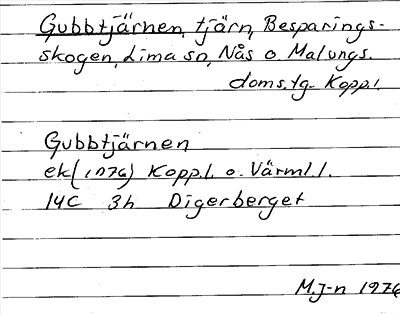 Gubbtjärnen, tjärn, Besparings-
skogen, Lima sn, Nås o. Malungs.
doms.tg. Kopp.l.
Gubbtjärnen
ek (1976) Kopp.l. o. Värml.l.
14C 3h Digerberget
M.J-n 1976